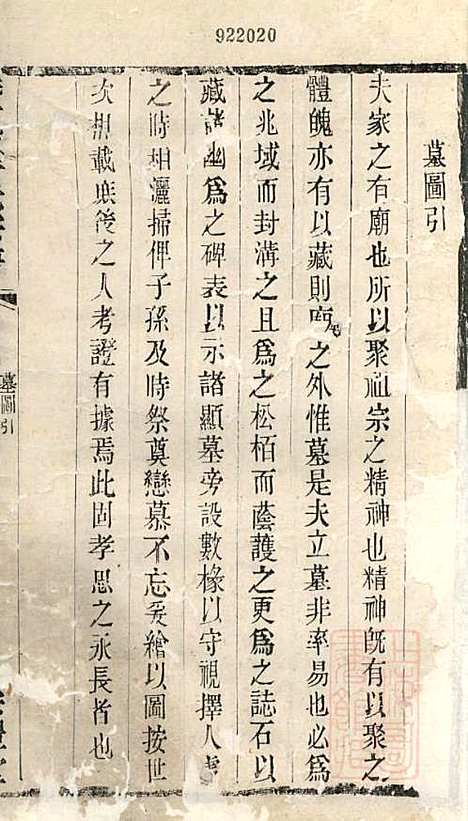 922020
墓圖引
夫家之有廟也所以聚祖宗之精神也精神既有以聚之
體魄亦有以藏則之外惟墓是夫立墓非率易也必為
之兆域而封溝之且為之松栢而蔭護之更為之誌石以
藏諸幽為之碑表以示諸顯墓旁設數椽以守視擇人
之時相灑掃俾子孫及時祭奠戀慕不忘爰繪以圖按世
次相載庶後之人考證有據焉此固孝思之永長者也
墓圖引